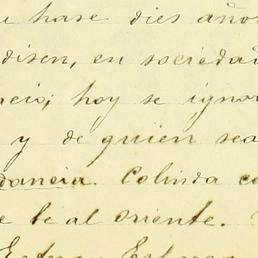 e hase dies años
disen, en sociedad
acio; hoy se ignor
y de quien sea
dancia. Colinda co
e te al oriente.